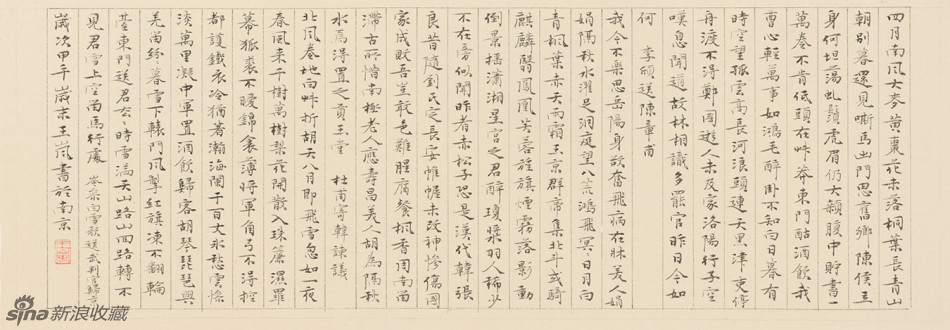 四月南風大麥黃棗花未落桐葉長青山
朝別暮還見嘶馬出門思舊鄉陳侯立
身何坦蕩虬鬚虎眉仍大顙腹中貯書一
萬卷不肯低頭在艸莽東門酤酒飲我
曹心輕萬事如鴻毛醉臥不知白日暮有
時空望孤雲高長河浪頭連天黑津吏停
舟渡不得鄭國遊人未及家洛陽行子空
嘆息聞道故林相識多罷官昨日今如
何 李頎送陳章甫
我今不樂思岳陽身欲奮飛病在牀美人娟
娟隔秋水濯足洞庭望八荒鴻飛冥冥日月白
青楓葉赤天雨霜玉京群帝集北斗或騎
麒麟翳鳳凰芙蓉旌旗煙霧落影動
倒景搖瀟湘星宮之君醉瓊漿羽人稀少
不在旁似聞昨者赤松子恐是漢代韓張
良昔隨劉氏定長安帷幄未改神慘傷國
家成敗吾豈敢色難腥腐餐楓香周南留
滯古所惜南極老人應壽昌美人胡為隔秋
水焉得置之貢玉堂 杜甫寄韓諫議
北風卷地白艸折胡天八月即飛雪忽如一夜
春風來千樹萬樹梨花開散入珠簾濕羅
幕狐裘不暖錦衾薄將軍角弓不得控
都護鐵衣冷猶著瀚海闌干百丈冰愁雲慘
淡萬里凝中軍置酒飲歸客胡琴琵琶與
羌笛紛紛暮雪下轅門風掣紅旗凍不翻輪
臺東門送君去々時雪滿天山路山回路轉不
見君雪上空留馬行處 岑參白雪歌送武判官歸京
歲次甲午歲末王嵐書於南京
sina新浪收藏